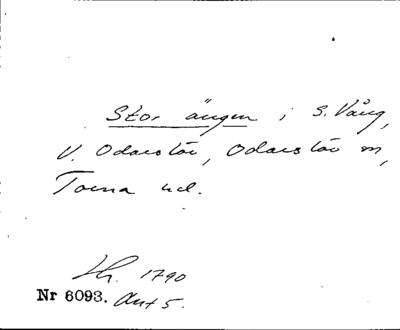 Stor ängen i S. Vång,
V. Odarslöv, Odarslöv sn,
Torna hd.
Lh. 1790
Nr 6093. Akt 5.